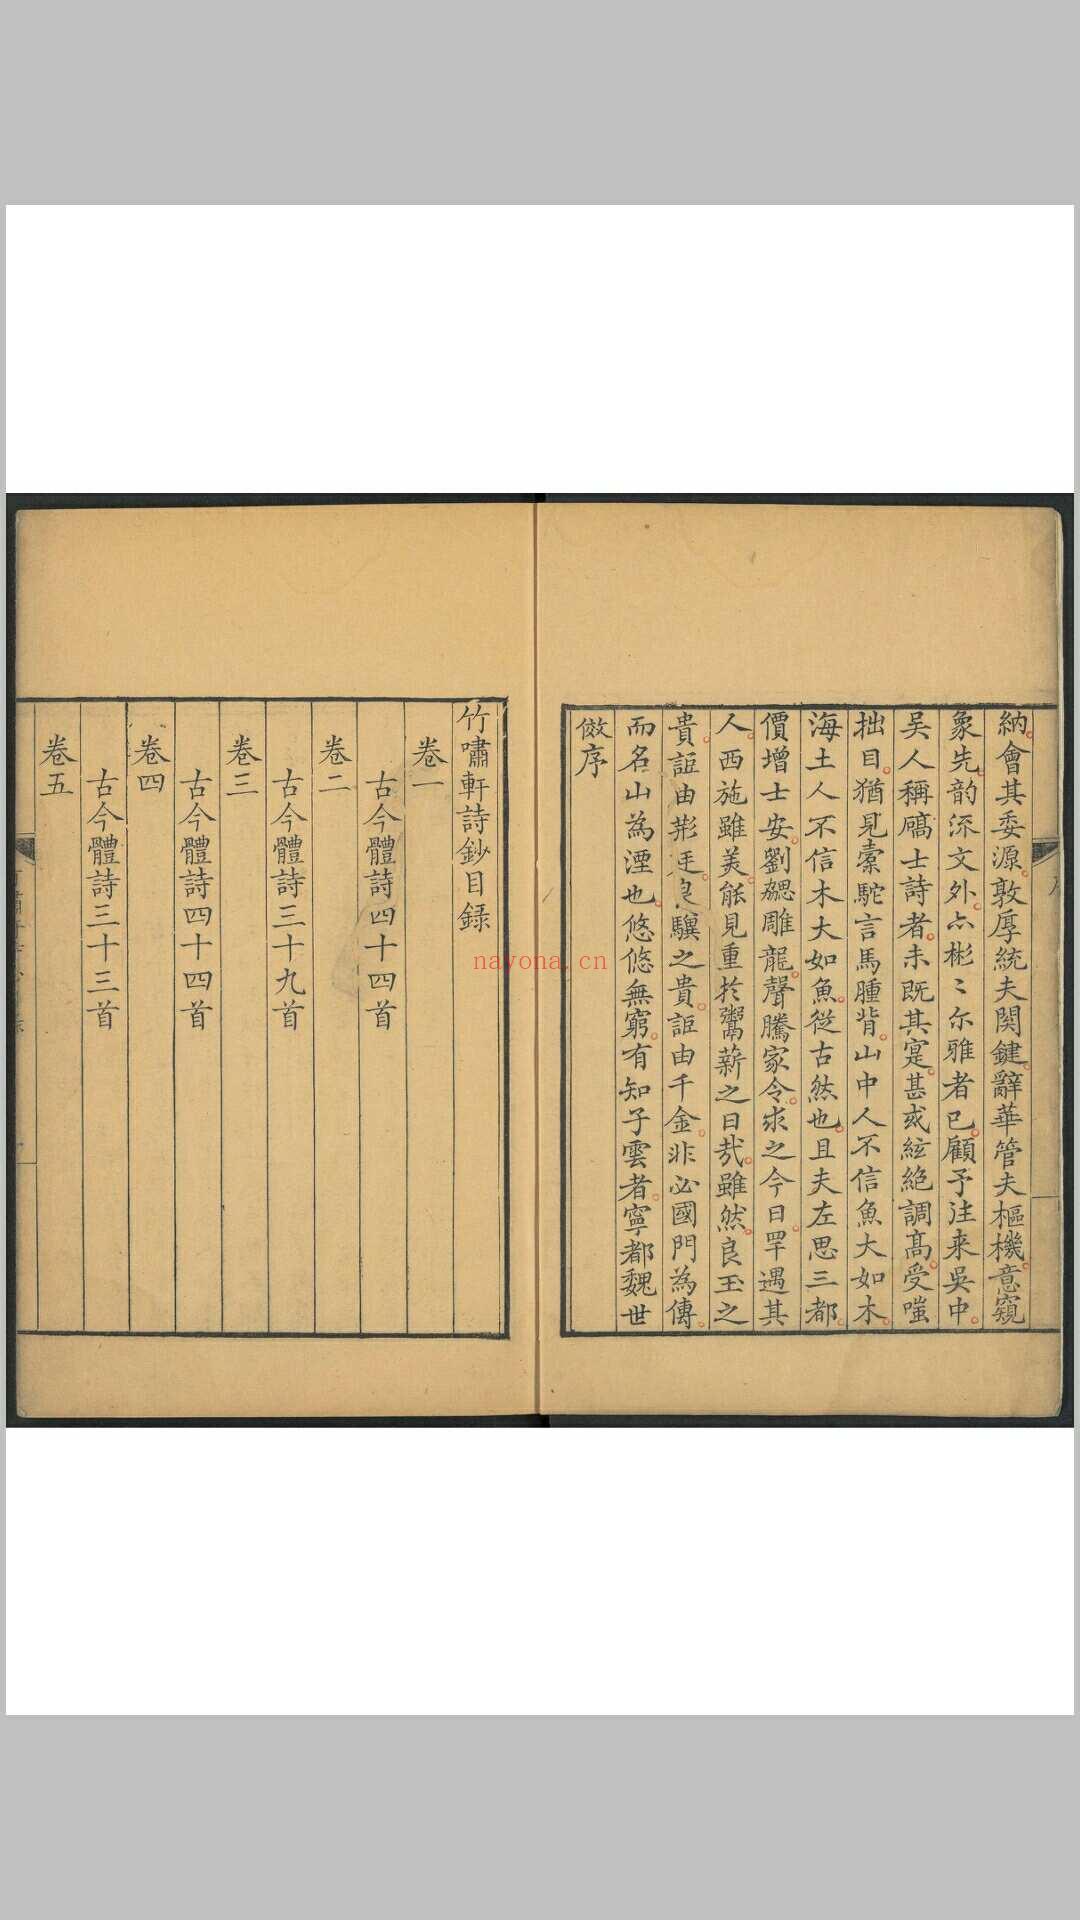 納會其委源敦厚統夫関鍵辭華管夫樞機意窺
象先韵流文外亦彬〻尔雅者已顧予注来吳中
吴人稱碻士詩者未既其寔甚或絃絶調髙受嗤
拙目猶見橐駝言馬腫背山中人不信魚大如木
海土人不信木大如魚從古然也且夫左思三都
價增士安劉勰雕龍聲騰家令求之今日罕遇其
人西施雖美能見重扵鬻薪之日㢤雖然良玉之
貴詎由荆良驥之貴詎由千金非必國門為傳
而名山為湮也悠悠無窮有知子雲者寧都魏世
傚序
竹嘯軒詩鈔目録
卷一
古今體詩四十四首
卷二
古今體詩三十九首
卷三
古今體詩四十四首
卷四
古今體詩三十三首
卷五
nayona.cn